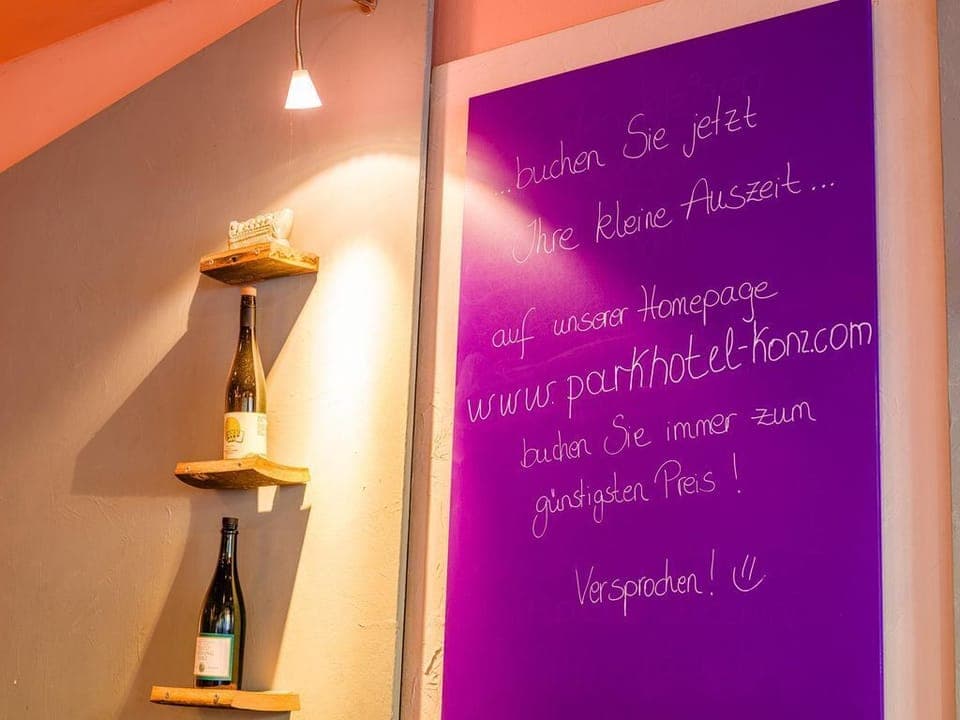 ...buchen Sie jetzt
Ihre kleine Auszeit...
auf unserer Homepage
www.parkhotel-konz.com
buchen Sie immer zum
günstigsten Preis!
Versprochen!